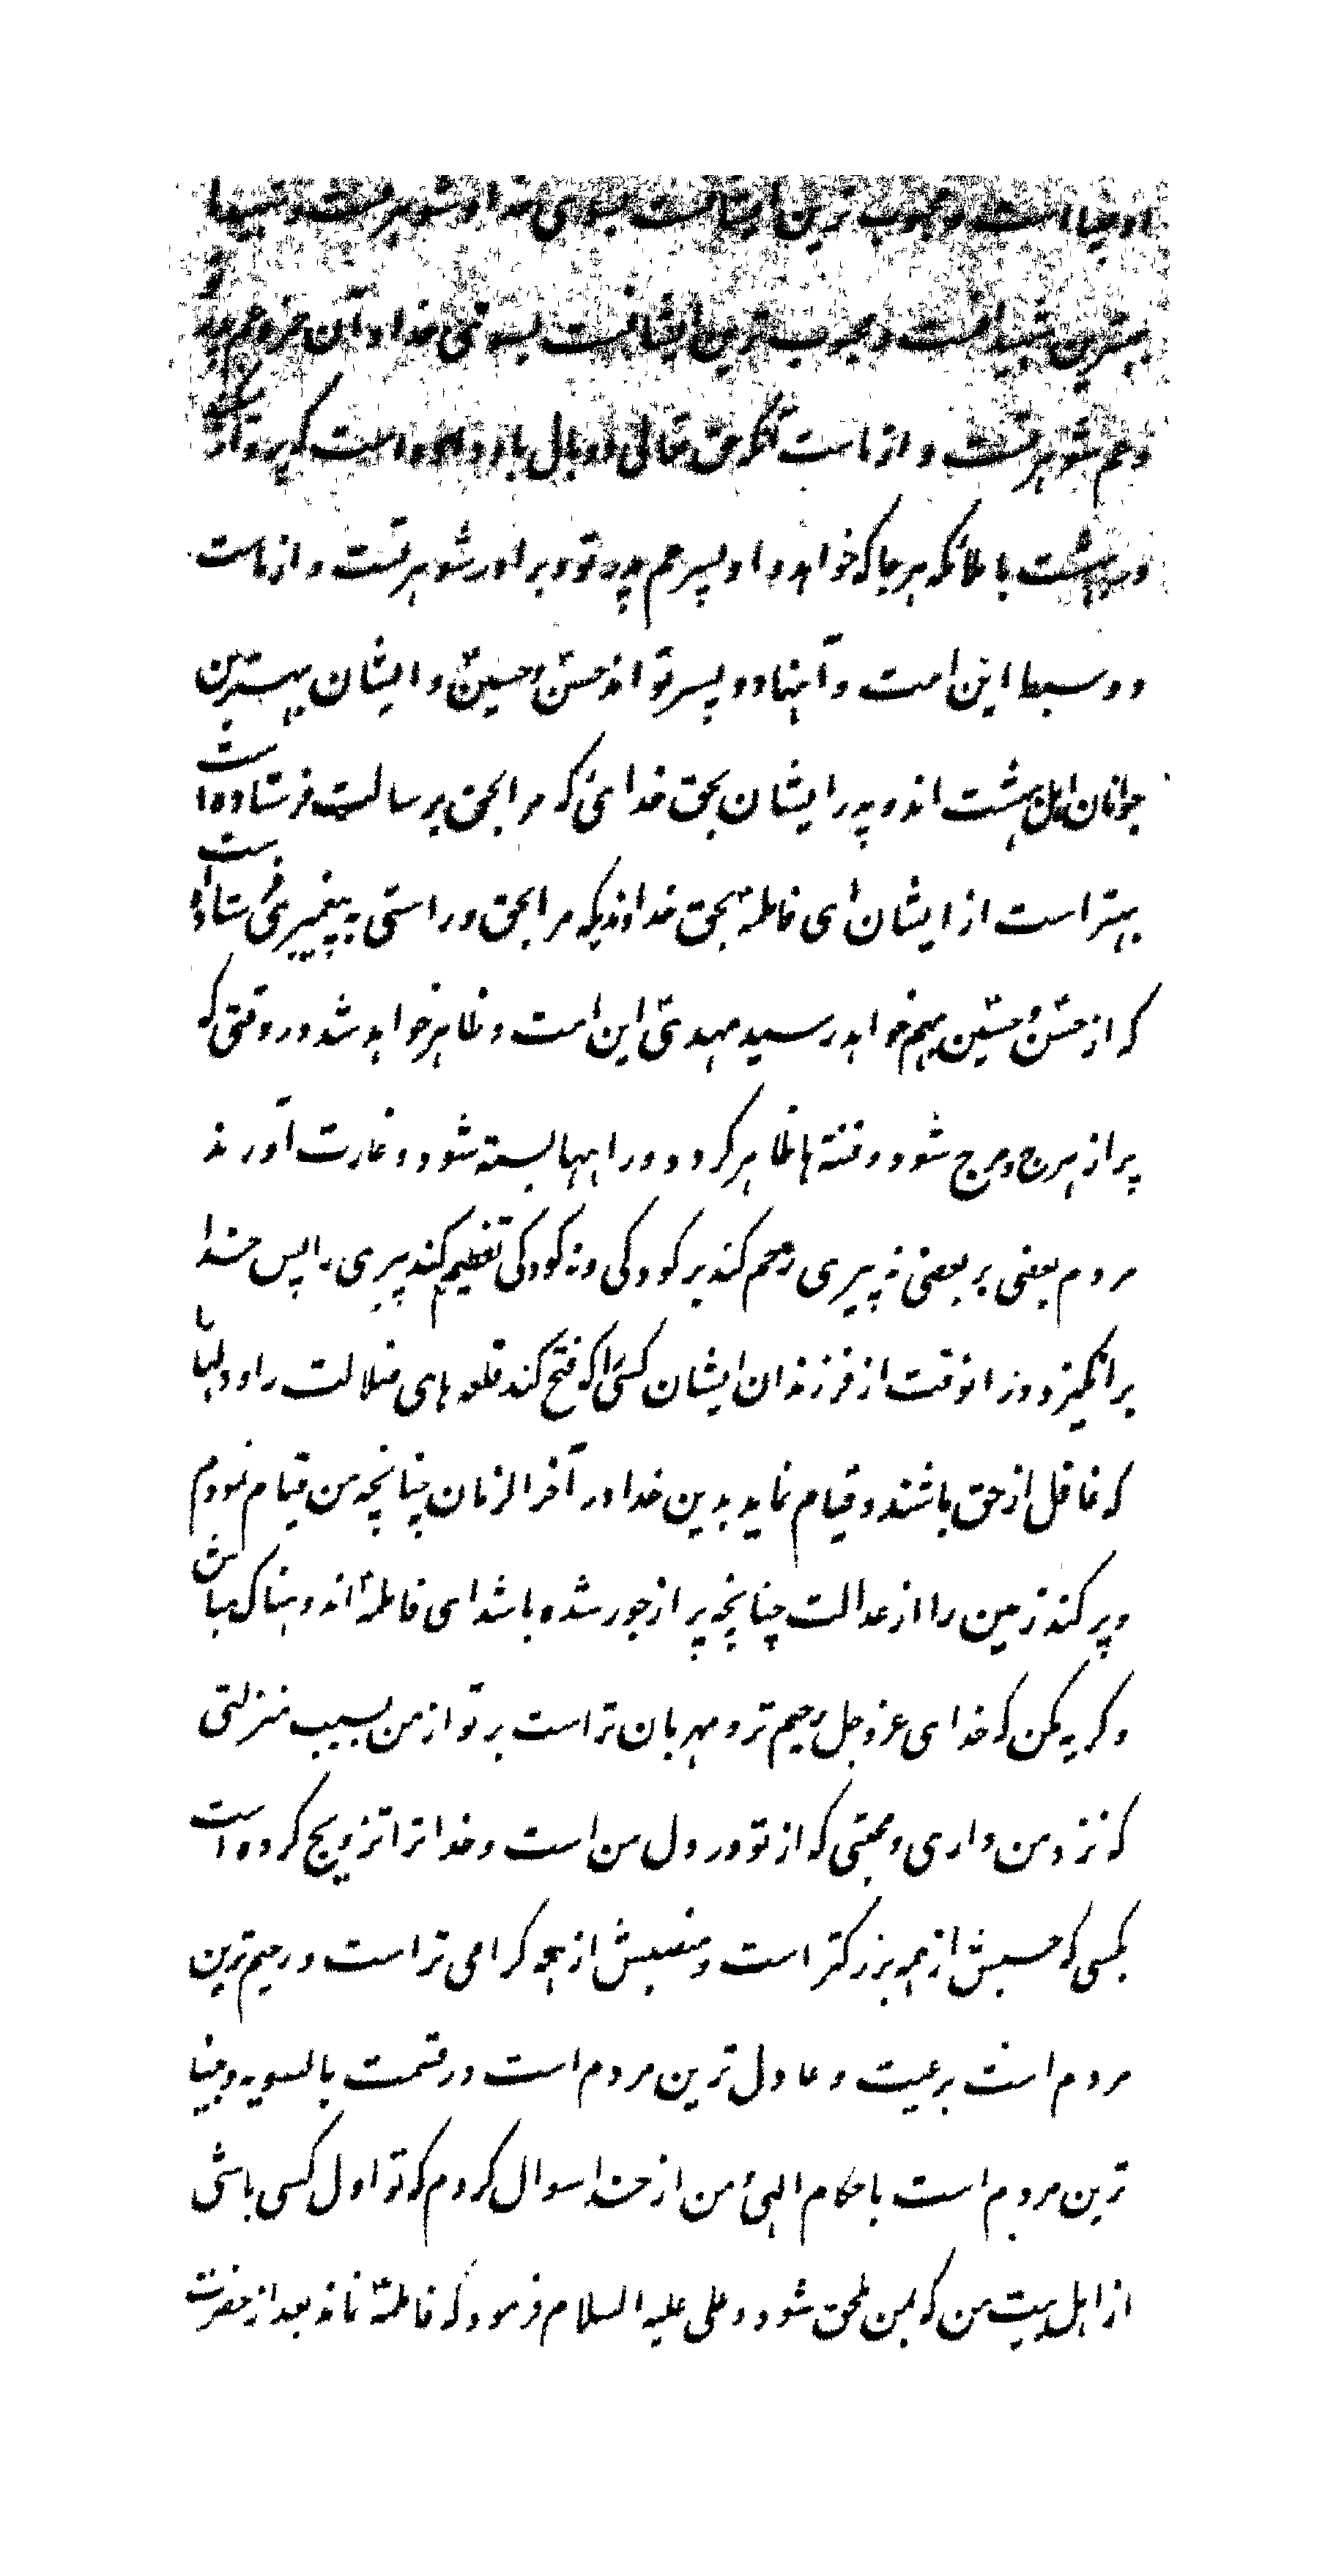 اوصیا است و محبوب ترین ایشانست بسوی خدا و شوهر تست و شهید ما
بهترین شهیدانست و محبوب ترین ایشانست بسوی خدا و آن حمزه عم پدر تو
و عم شوهر تست و از ماست آنکه حق تعالی دو بال باو داده است که پرواز کند
در بهشت با ملائکه هر جا که خواهد و او پسر عم پدر تو و برادر شوهر تست و از ماست
دو سبط این امت و آنها دو پسر تو اند حسن و حسین و ایشان بهترین
جوانان اهل بهشت اند و پدر ایشان بحق خدائی که مرا بحق برسالت فرستاده است
بهتر است از ایشان ای فاطمه بحق خداوندیکه مرا بحق و راستی به پیغمبری فرستاده است
که از حسن و حسین بهم خواهد رسید مهدی این امت و ظاهر خواهد شد در وقتی که
پر از هرج و مرج شود و فتنه ها ظاهر کردد و راهها بسته شود و غارت آورند
مردم بعضی بر بعضی نه پیری رحم کند بر کودکی و نه کودکی تعظیم کند پیری را پس خدا
برانکیزد در انوقت از فرزندان ایشان کسی را که فتح کند قلعه های ضلالت را و دلها
که غافل از حق باشند و قیام نماید بدین خدا در آخر الزمان چنانچه من قیام نمودم
و پر کند زمین را از عدالت چنانچه پر از جور شده باشد ای فاطمه اندوهناک مباش
و کریه مکن که خدای عز و جل رحیم تر و مهربان تر است بر تو از من بسبب منزلتی
که نزد من داری و محبتی که از تو در دل من است و خدا ترا تزویج کرده است
بکسی که حسبش از همه بزرکتر است و منصبش از همه کرامی تر است و رحیم ترین
مردم است برعیت و عادل ترین مردم است در قسمت بالسویه و بینا
ترین مردم است باحکام الهی من از خدا سوال کردم که تو اول کسی باشی
از اهل بیت من که بمن ملحق شود و علی علیه السلام فرمود که فاطمه نماند بعد از حضرت